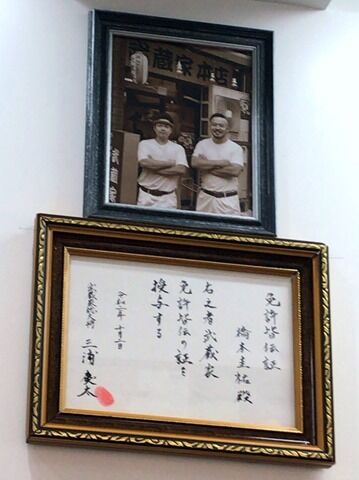 武蔵家本店
武蔵家
免許皆伝証
橋本圭祐殿
右之者武蔵家
免許皆伝の証を
授与する
令和二年十月一日
三浦慶太